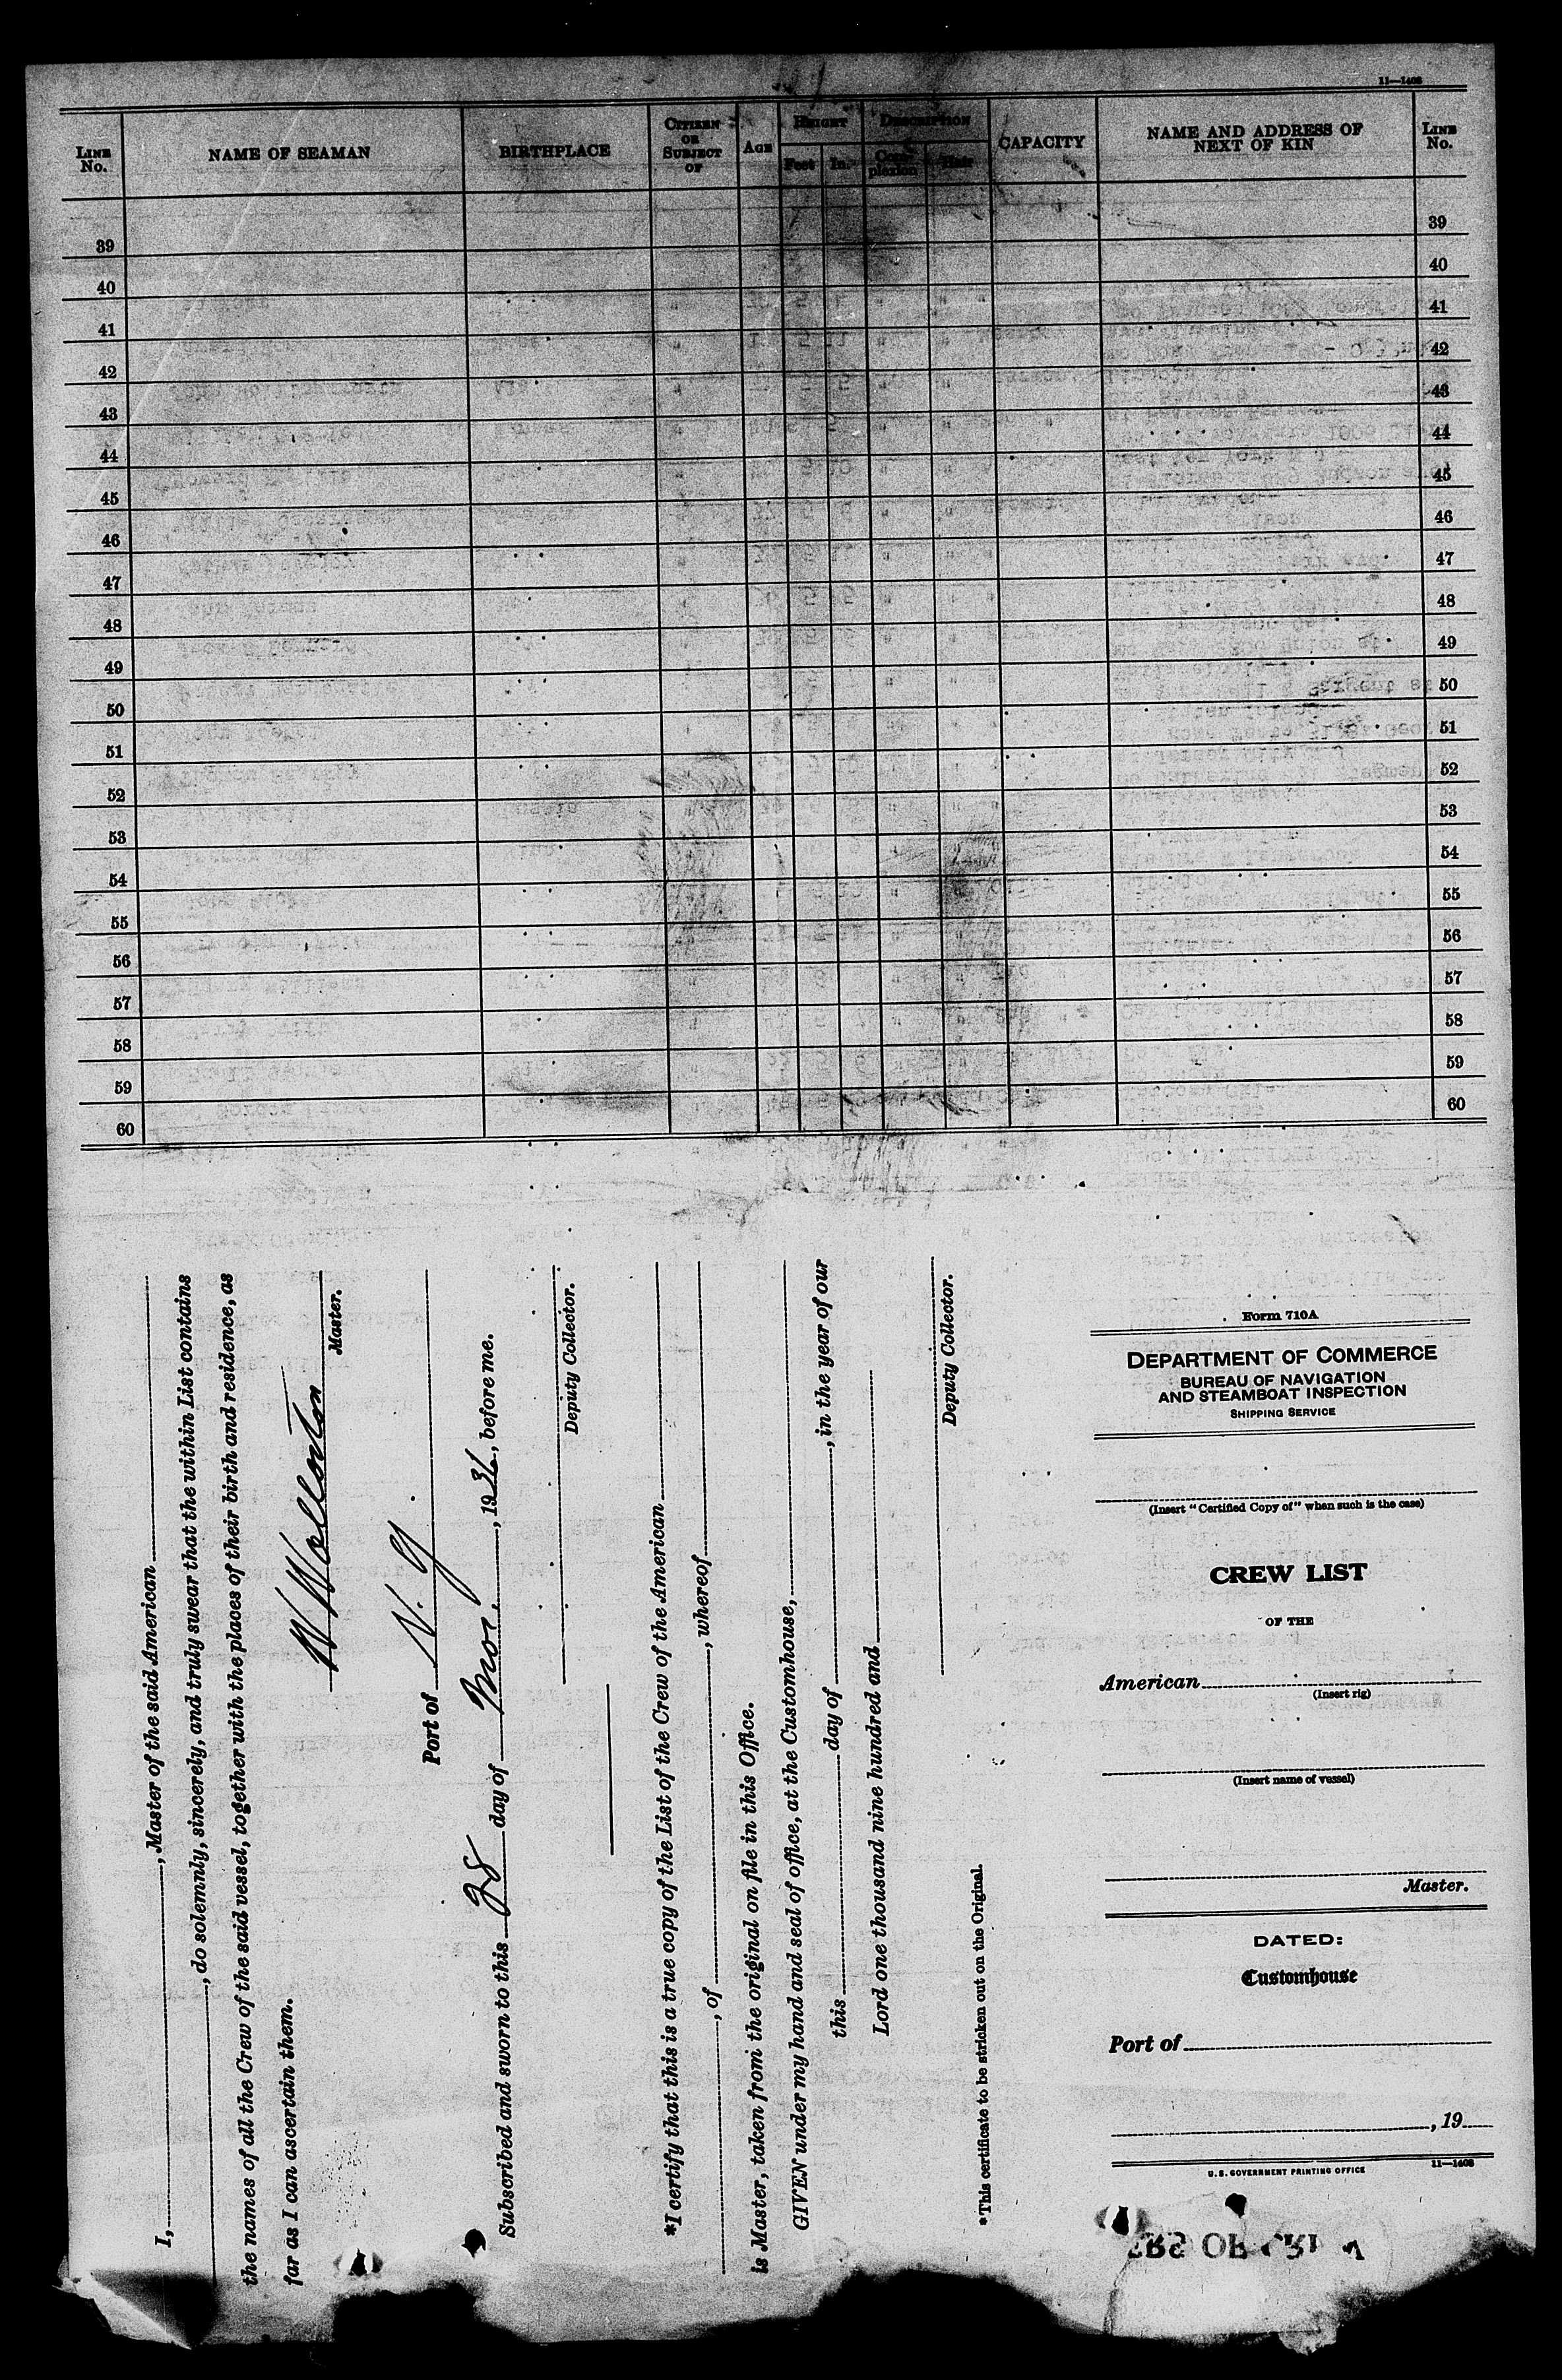 11—1408
LINE No. NAME OF SEAMAN BIRTHPLACE CITIZEN OR SUBJECT OF AGE HEIGHT Feet In. DESCRIPTION Complexion Hair CAPACITY NAME AND ADDRESS OF NEXT OF KIN LINE No.
39 39
40 40
41 41
42 42
43 43
44 44
45 45
46 46
47 47
48 48
49 49
50 50
51 51
52 52
53 53
54 54
55 55
56 56
57 57
58 58
59 59
60 60
I, , Master of the said American
, do solemnly, sincerely, and truly swear that the within List contains
the names of all the Crew of the said vessel, together with the places of their birth and residence, as
far as I can ascertain them.
Master.
Port of N. Y.
Subscribed and sworn to this 28 day of , 1936, before me.
Deputy Collector.
*I certify that this is a true copy of the List of the Crew of the American
, of , whereof
is Master, taken from the original on file in this Office.
GIVEN under my hand and seal of office, at the Customhouse,
this day of , in the year of our
Lord one thousand nine hundred and
Deputy Collector.
*This certificate to be stricken out on the Original.
Form 710A
DEPARTMENT OF COMMERCE
BUREAU OF NAVIGATION
AND STEAMBOAT INSPECTION
SHIPPING SERVICE
(Insert "Certified Copy of" when such is the case)
CREW LIST
OF THE
American
(Insert rig)
(Insert name of vessel)
Master.
DATED:
Customhouse
Port of
, 19
U. S. GOVERNMENT PRINTING OFFICE 11—1408